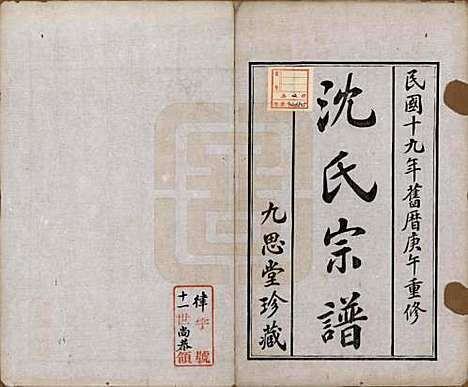 民國十九年舊曆庚午重修
沈氏宗譜
九思堂珍藏
律字號
十一世尚恭領